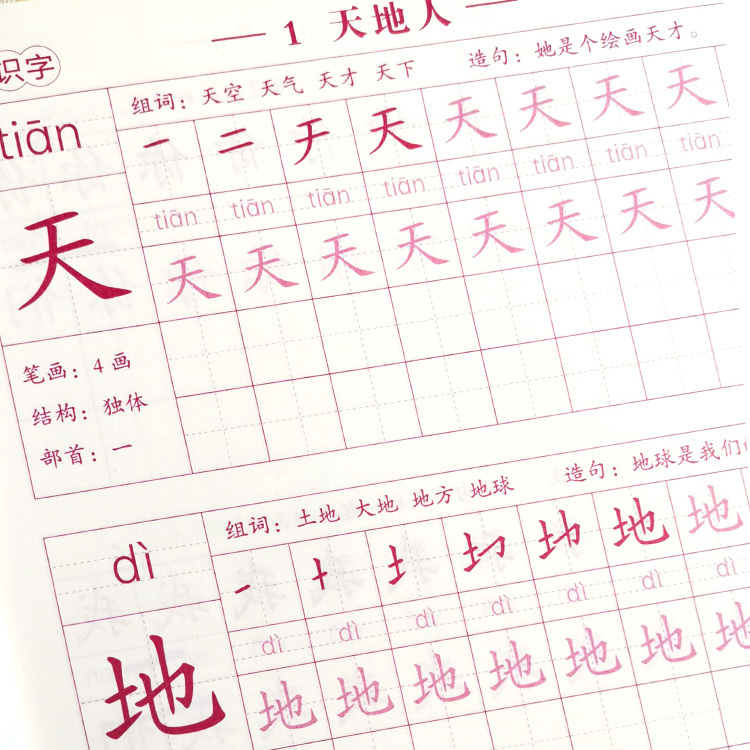 1 天地人
识字
组词：天空 天气 天才 天下 造句：她是个绘画天才。
tiān
一 二 天 天 天 天 天
tiān tiān tiān tiān tiān tiān tiān tiān
天
天 天 天 天 天 天 天 天
笔画：4画
结构：独体
部首：一
组词：土地 大地 地方 地球 造句：地球是我们
dì
地 地
dì dì dì dì dì dì dì
地
地 地 地 地 地 地 地